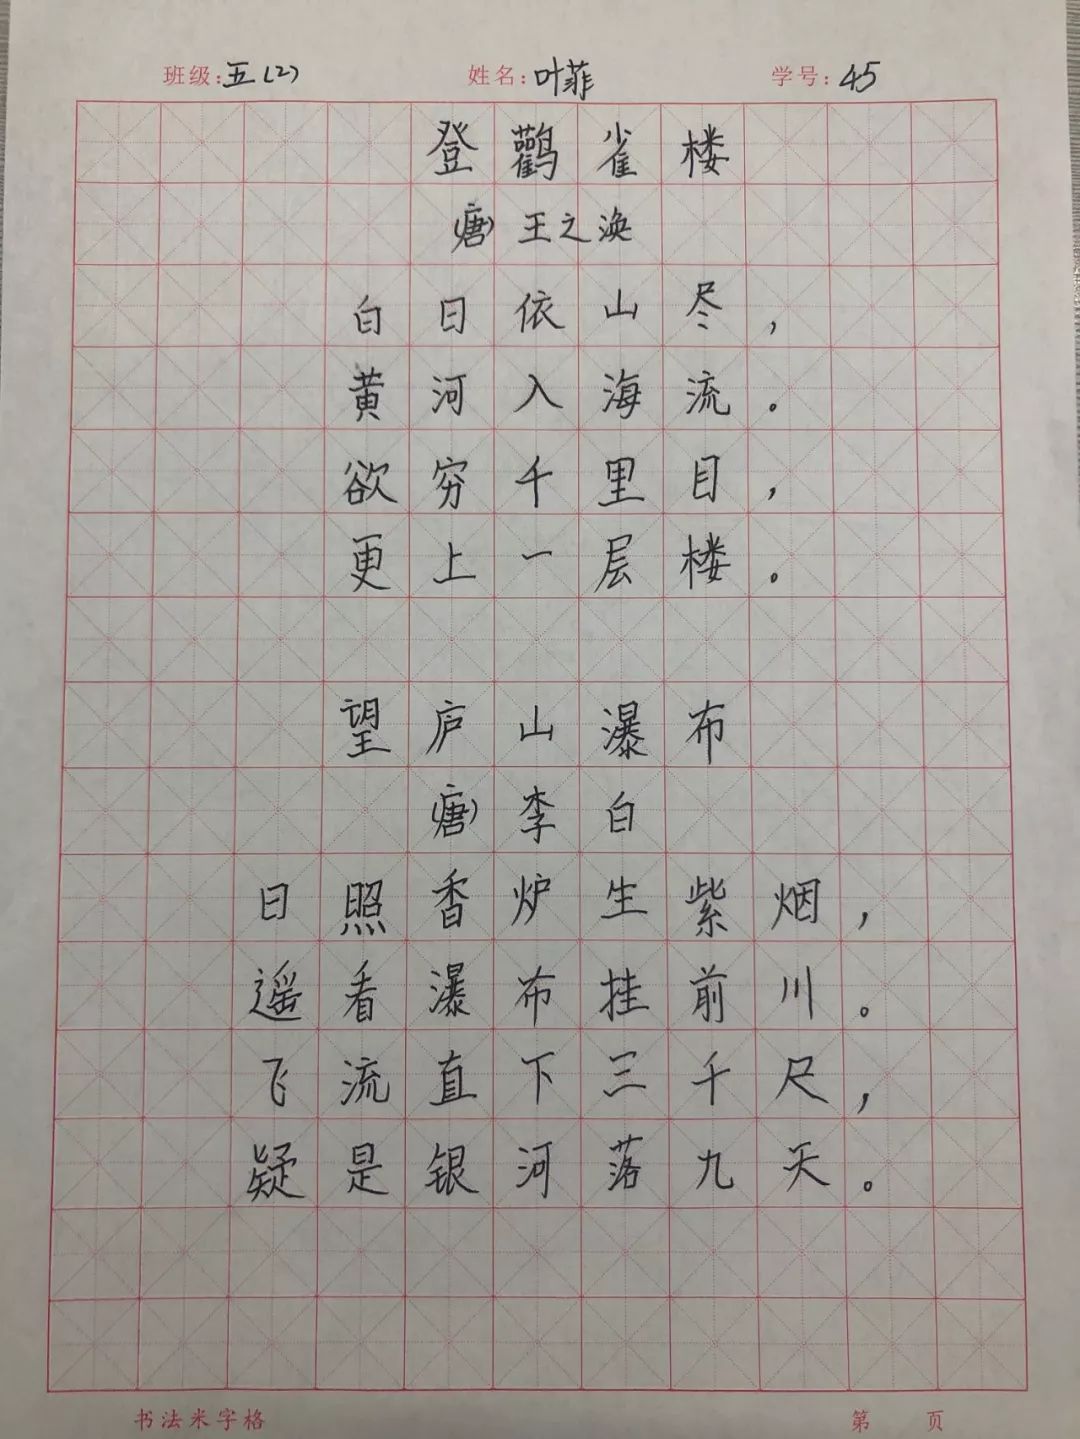 班级：五(2) 姓名：叶菲 学号：45
登鹳雀楼
(唐) 王之涣
白日依山尽，
黄河入海流。
欲穷千里目，
更上一层楼。
望庐山瀑布
(唐) 李白
日照香炉生紫烟，
遥看瀑布挂前川。
飞流直下三千尺，
疑是银河落九天。
书法米字格 第 页